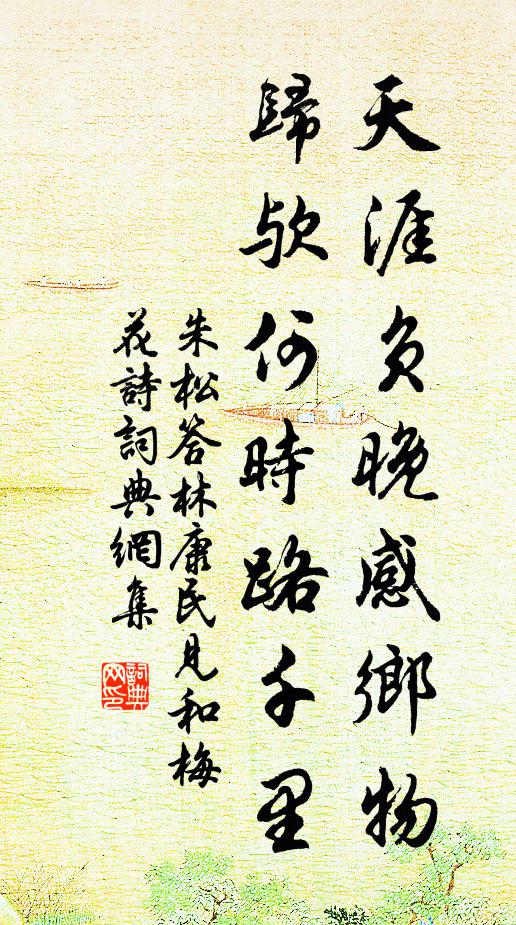 天涯歲晚感鄉物
歸歟何時路千里
朱松答林康民見和梅
花詩詞典網集
詞典
网印